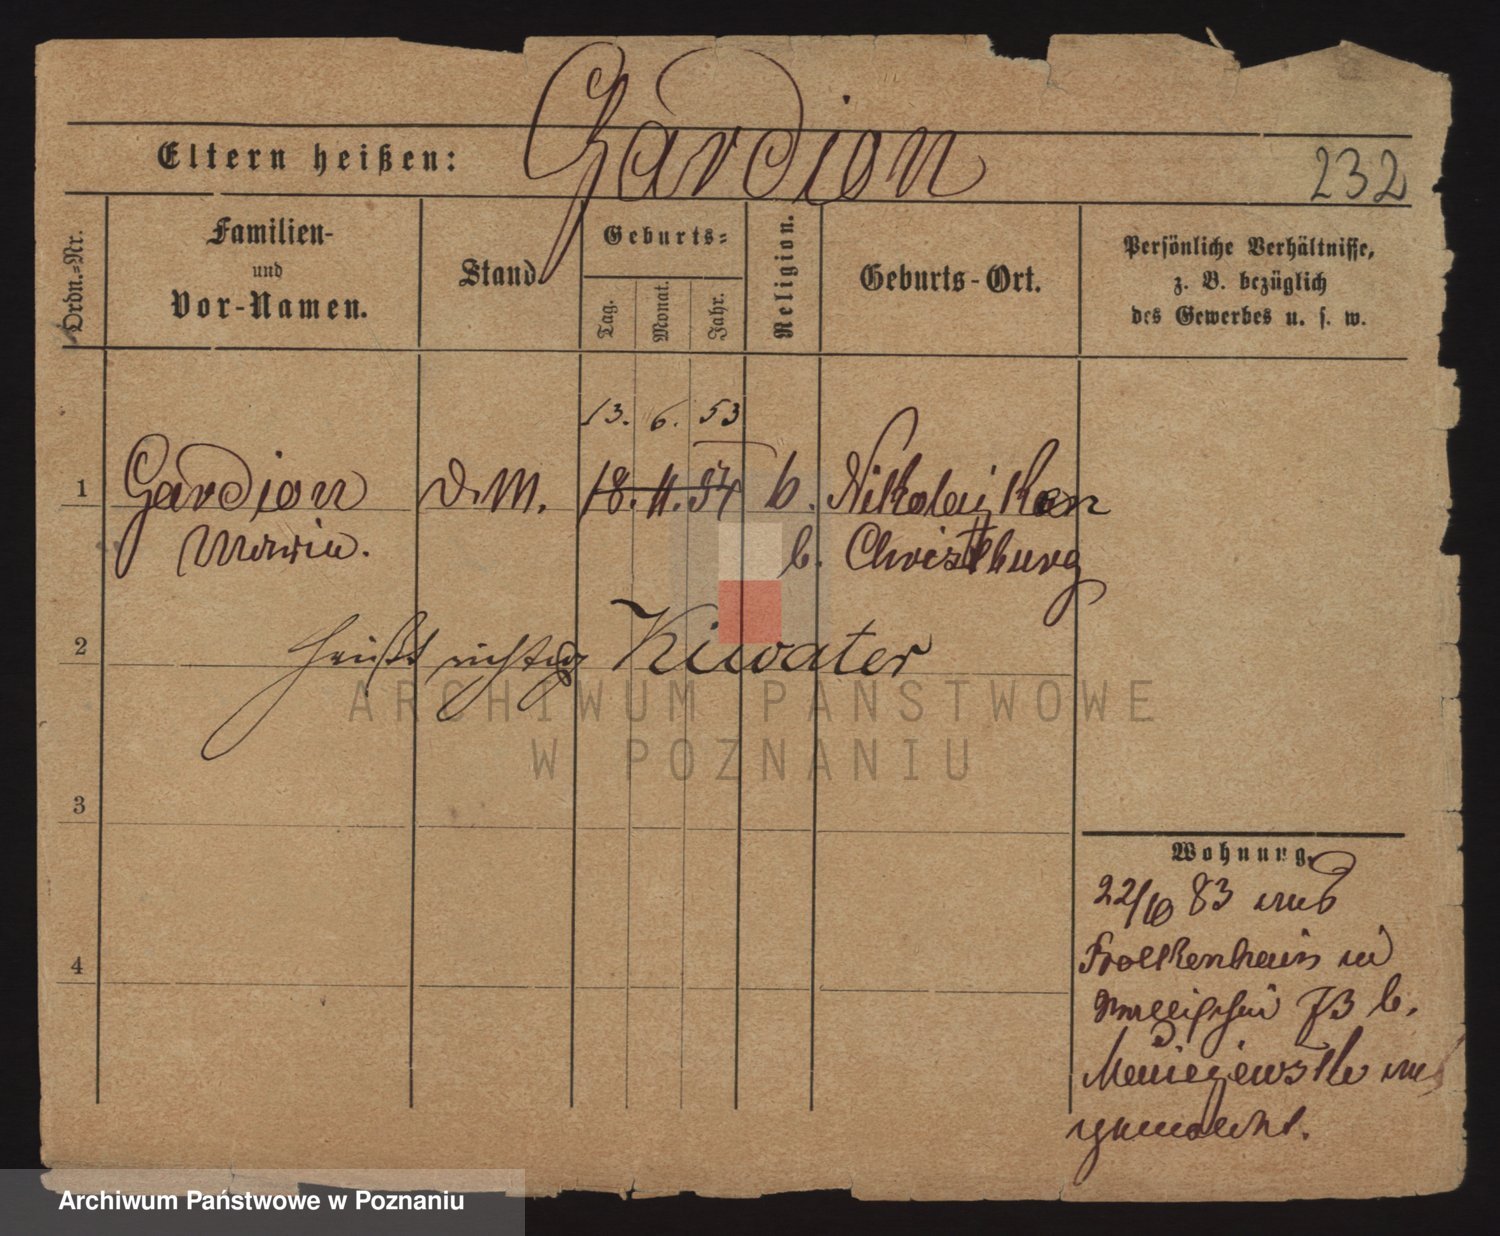 Gardion
Eltern heißen:
232
Ordn.-Nr.
Familien-
und
Vor-Namen.
Stand
Geburts-
Tag.
Monat.
Jahr.
Religion.
Geburts-Ort.
Persönliche Verhältnisse,
z. B. bezüglich
des Gewerbes u. s. w.
13. 6. 53
1 Gardion D. M. 18. 11. 54 b. Nikolaiken
Maria. b. Christburg
2 heißt richtig Kiwater
3
Wohnung.
22/10 83 aus
in
4 73 b.
gemacht.
ARCHIWUM PAŃSTWOWE
W POZNANIU
Archiwum Państwowe w Poznaniu